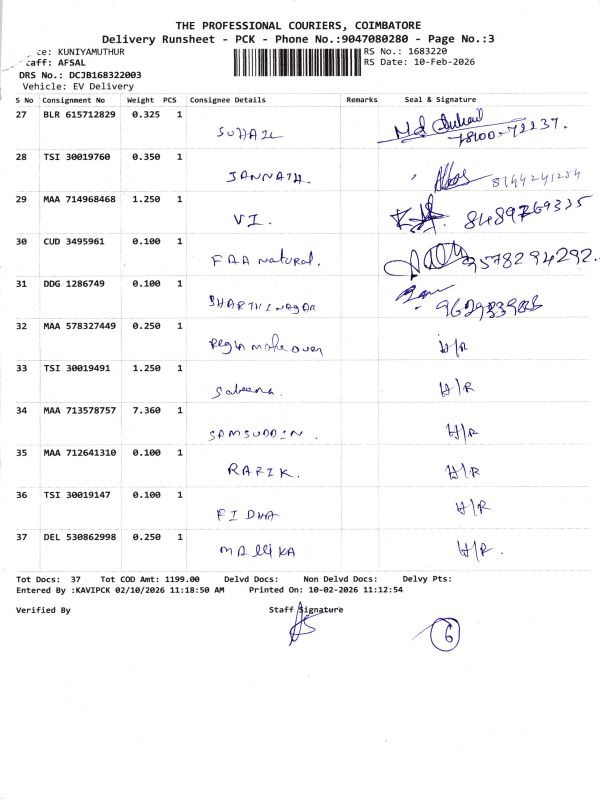 THE PROFESSIONAL COURIERS, COIMBATORE
Delivery Runsheet - PCK - Phone No.:9047080280 - Page No.:3
ce: KUNIYAMUTHUR RS No.: 1683220
taff: AFSAL RS Date: 10-Feb-2026
DRS No.: DCJB168322003
Vehicle: EV Delivery
S No Consignment No Weight PCS Consignee Details Remarks Seal & Signature
27 BLR 615712829 0.325 1
SUHAIL Md Suhail
78100-72237.
28 TSI 30019760 0.350 1
JANNATH. 8144241284
29 MAA 714968468 1.250 1
VI. 8489769335
30 CUD 3495961 0.100 1
FAA natural. 9578294292.
31 DDG 1286749 0.100 1
BHARTHINAGAR
32 MAA 578327449 0.250 1
Regia make over H/R
33 TSI 30019491 1.250 1
Sabeena. H/R
34 MAA 713578757 7.360 1
SAMSUDDIN. H/R
35 MAA 712641310 0.100 1
RAFIK. H/R
36 TSI 30019147 0.100 1
FIDHA H/R
37 DEL 530862998 0.250 1
MALLIKA H/R.
Tot Docs: 37 Tot COD Amt: 1199.00 Delvd Docs: Non Delvd Docs: Delvy Pts:
Entered By :KAVIPCK 02/10/2026 11:18:50 AM Printed On: 10-02-2026 11:12:54
Verified By Staff Signature
6